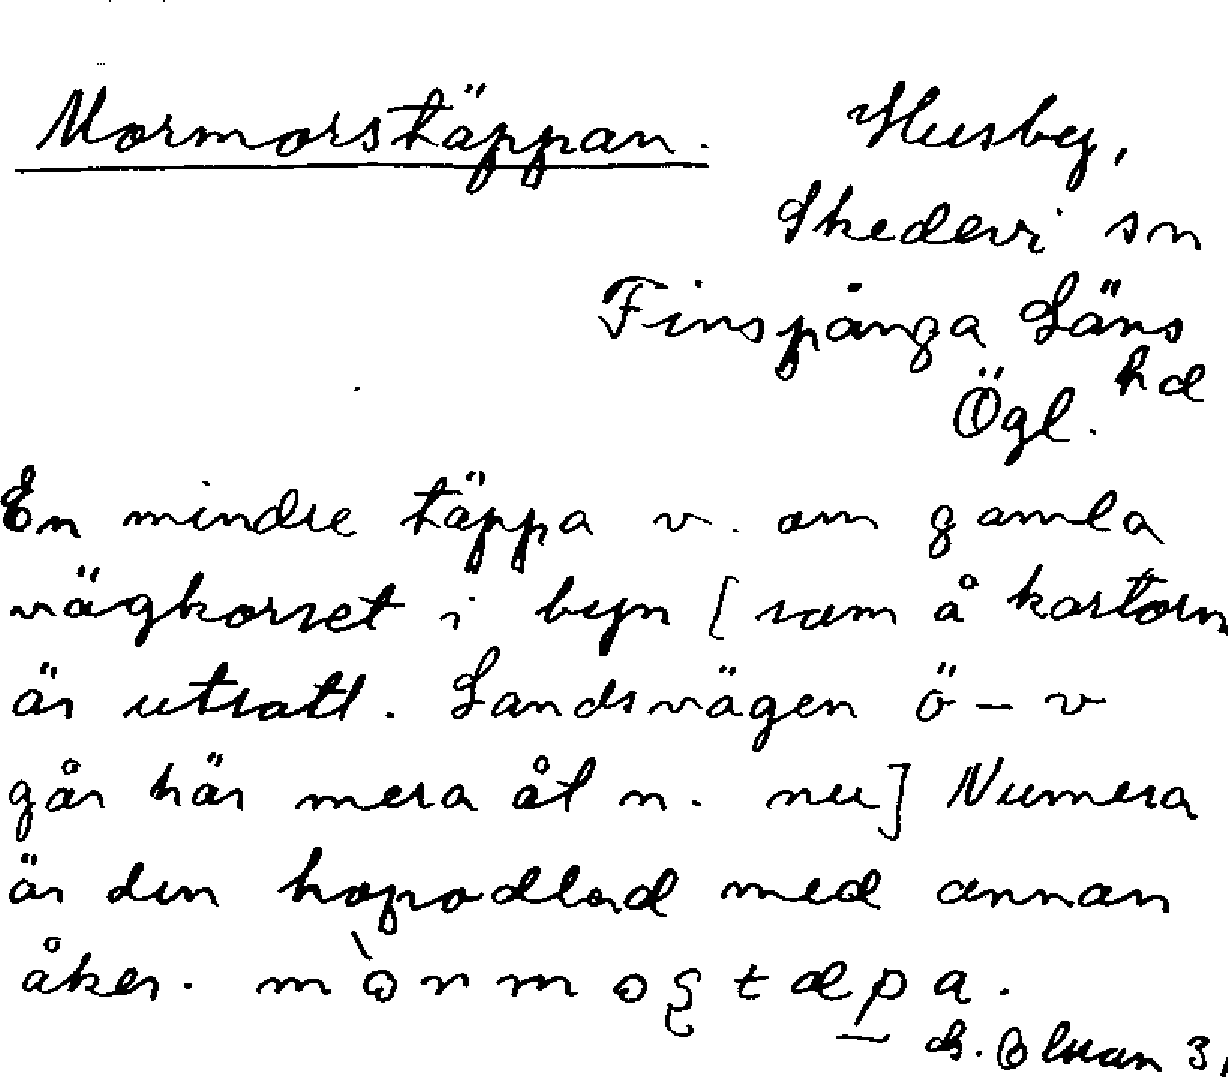 Mormorstäppan. Husby,
Skedevi sn
Finspånga Läns
hd
Ögl.
En mindre täppa v. om gamla
vägkorset i byn [som å kartorn
är utsatt. Landsvägen ö – v
går här mera åt n. nu] Numera
är den hopodlad med annan
åker.